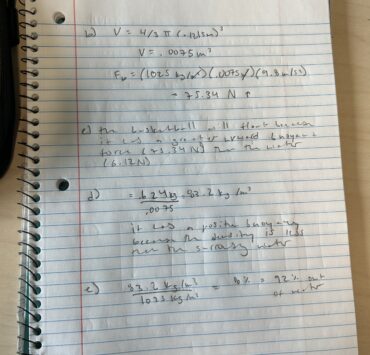 b) V = 4/3 π (.1213m)³
V = .0075m³
F_b = (1025 kg/m³)(.0075m³)(9.8m/s²)
= 75.34 N ↑
c) the basketball will float because
it has a greater upward buoyant
force (75.34N) than the water
(6.12N)
d) = .624kg = 83.2 kg/m³
.0075
it has a positive buoyancy
because the density is less
than the water
e) 83.2 kg/m³ = 8% = 92% out
1025 kg/m³ of water